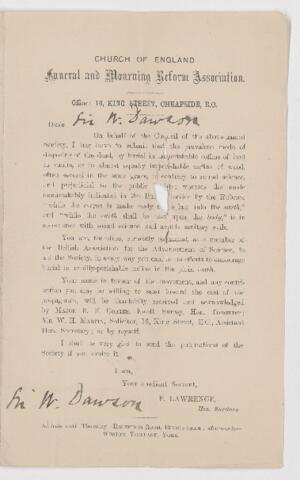 CHURCH OF ENGLAND
Funeral and Mourning Reform Association.
Office: 16, KING STREET, CHEAPSIDE, E.C.
Dear Sir W. Dawson
On behalf of the Council of the above-named
Society, I beg leave to submit that the prevalent mode of
disposing of the dead, by burial in imperishable coffins of lead
in vaults, or in almost equally imperishable coffins of wood,
often several in the same grave, is contrary to sound science,
and prejudicial to the public whereas the mode
indicated in the Burial Service by the Rubric,
"while the corpse is made ready to be laid into the earth,"
and "while the earth shall be cast upon the body," is in
accordance with sound science and sanitary
You are, therefore, earnestly requested as a member of
the British Association for the Advancement of Science, to
aid the Society, in every way you can, in its efforts to encourage
burial in easily-perishable coffins in the plain earth.
Your name in favour of the movement, and any contri-
bution you may be willing to send toward the cost of the
propaganda, will be thankfully received and acknowledged
by Major Hon. Treasurer;
Mr. W. H. Solicitor, 16, King Street, E.C., Assistant
Hon. Secretary; or by myself.
I shall be very glad to send the publications of the
Society if you desire it.
I am,
Your obedient Servant,
F. LAWRENCE,
Hon. Secretary
Sir W. Dawson
Address until Thursday
YORK